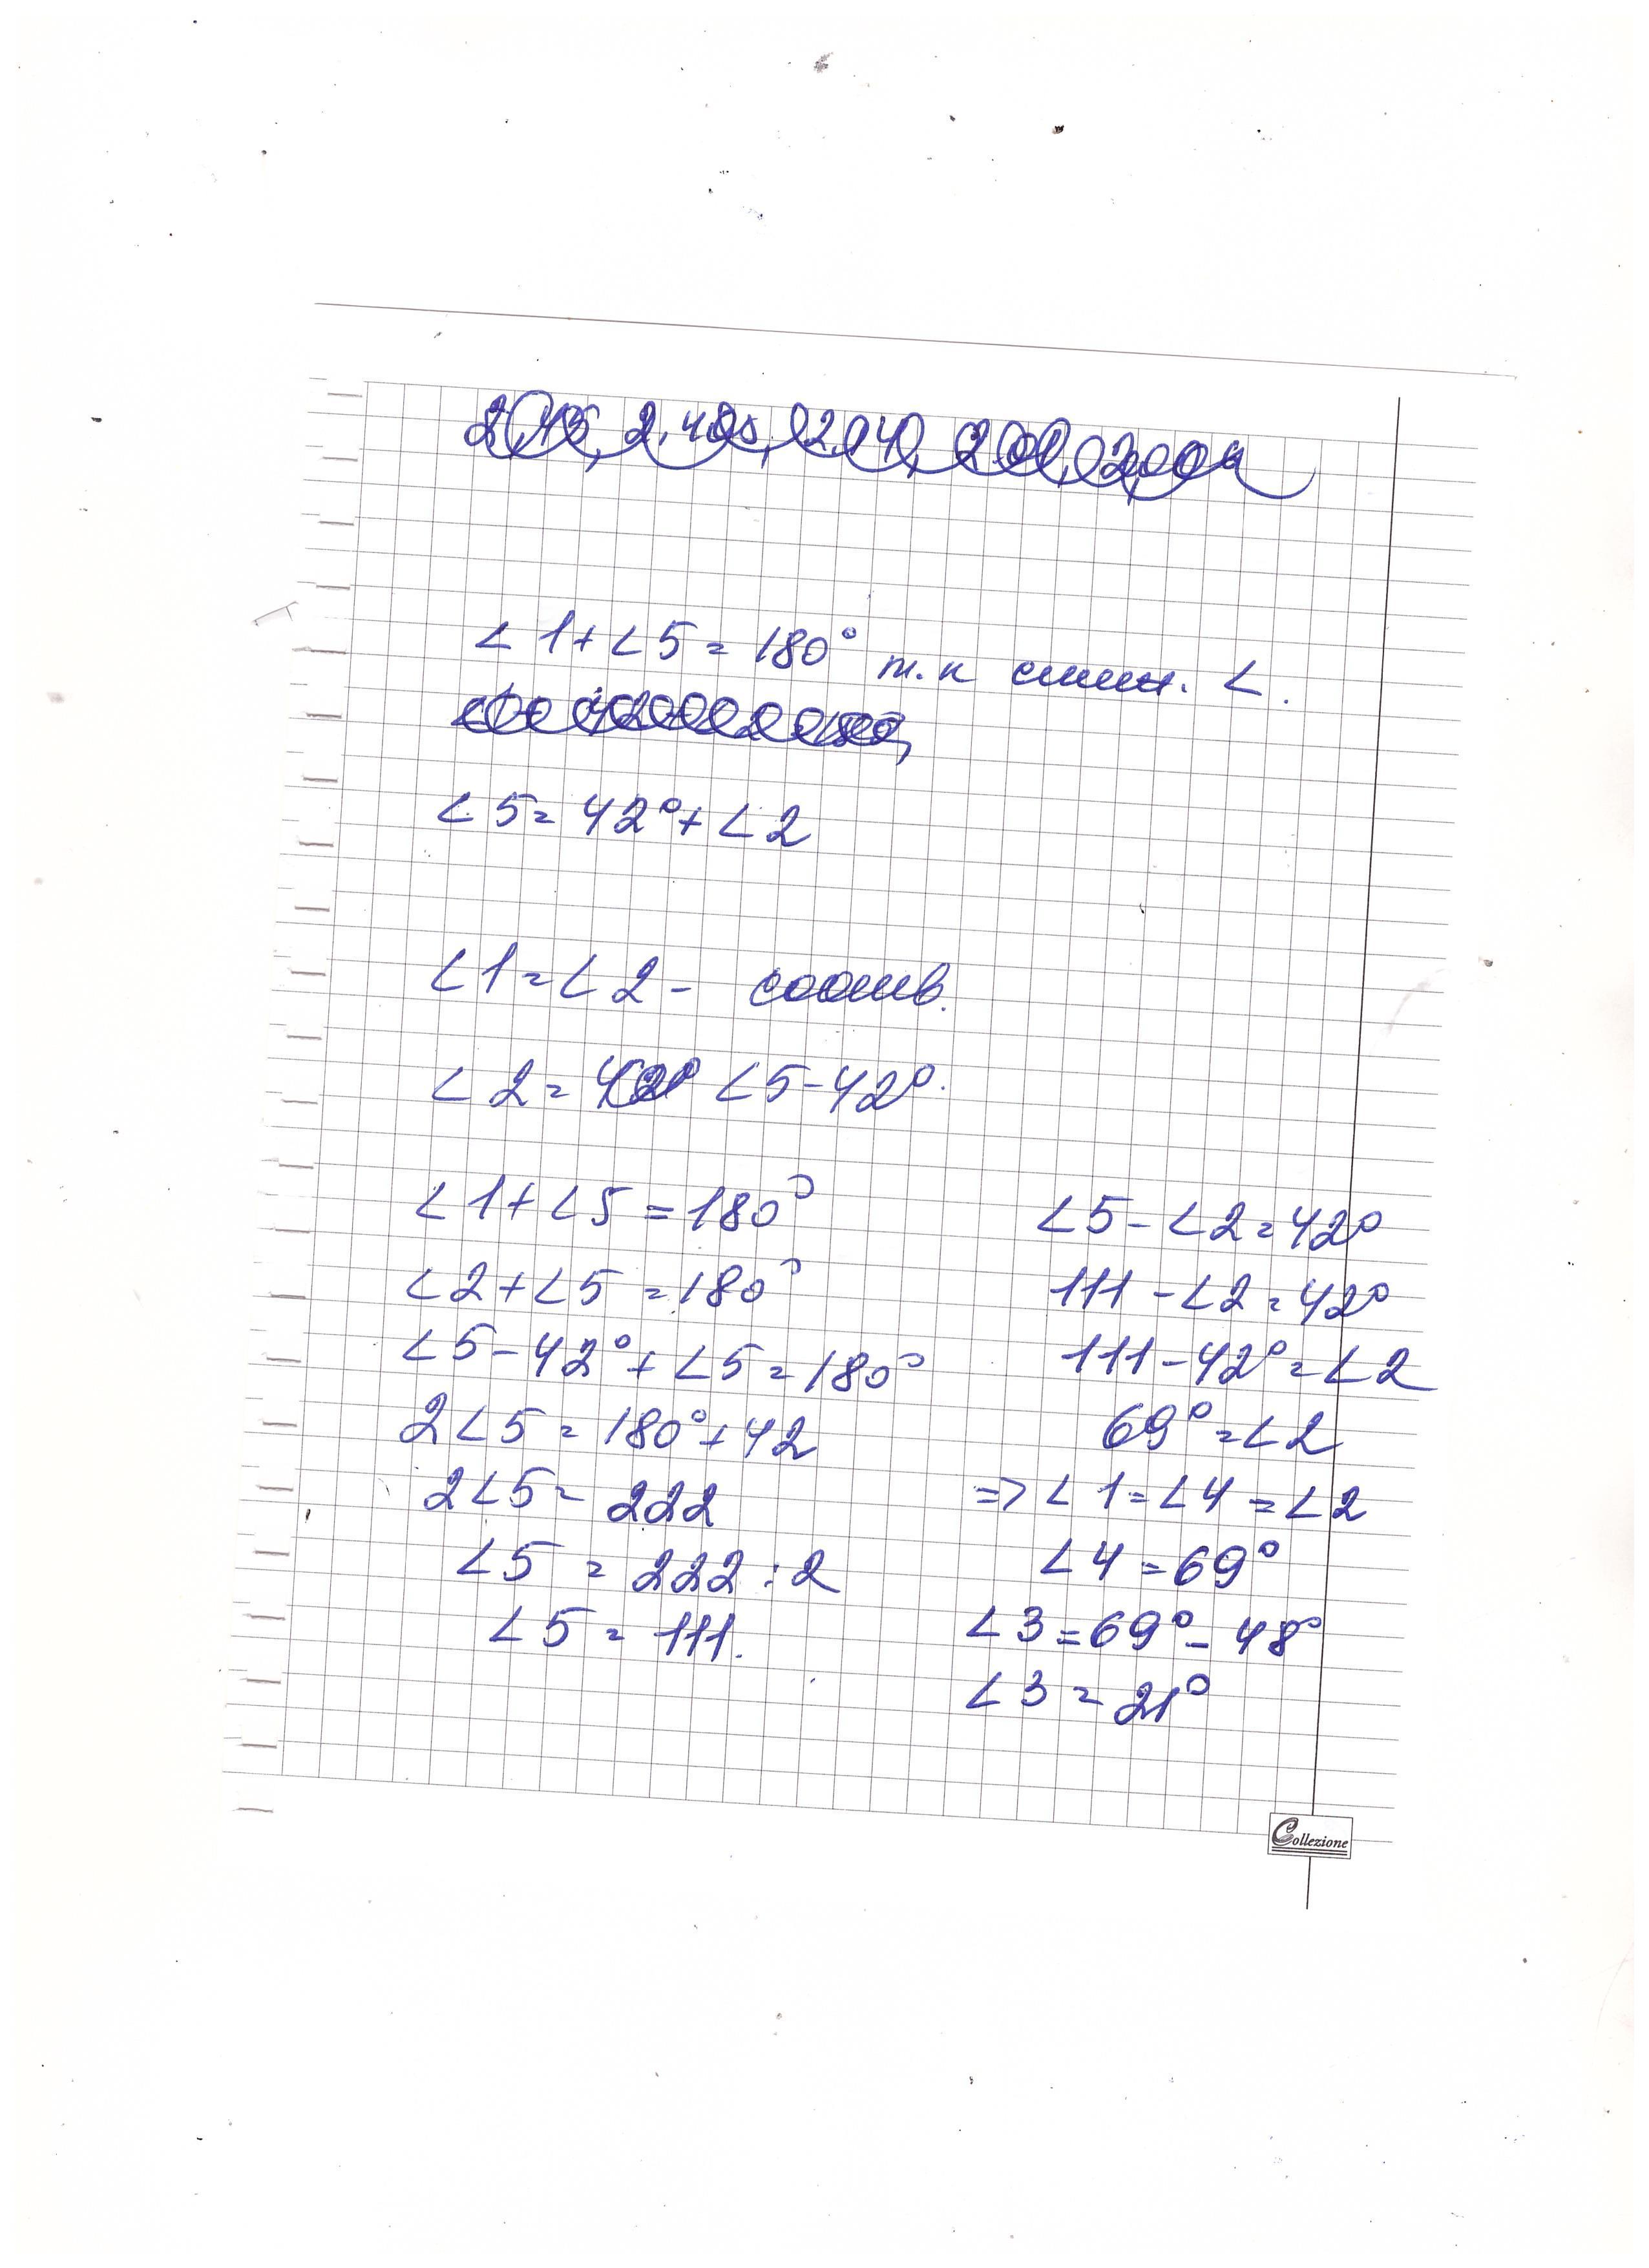 ∠1+∠5=180° т.к смеж. ∠.
∠5=42°+∠2
∠1=∠2- соотв.
∠2= ∠5-42°.
∠1+∠5=180°
∠2+∠5=180°
∠5-42°+∠5=180°
2∠5=180°+42
2∠5=222
∠5=222:2
∠5=111.
∠5-∠2=42°
111-∠2=42°
111-42°=∠2
69°=∠2
=>∠1=∠4=∠2
∠4=69°
∠3=69°-48°
∠3=21°
Collezione